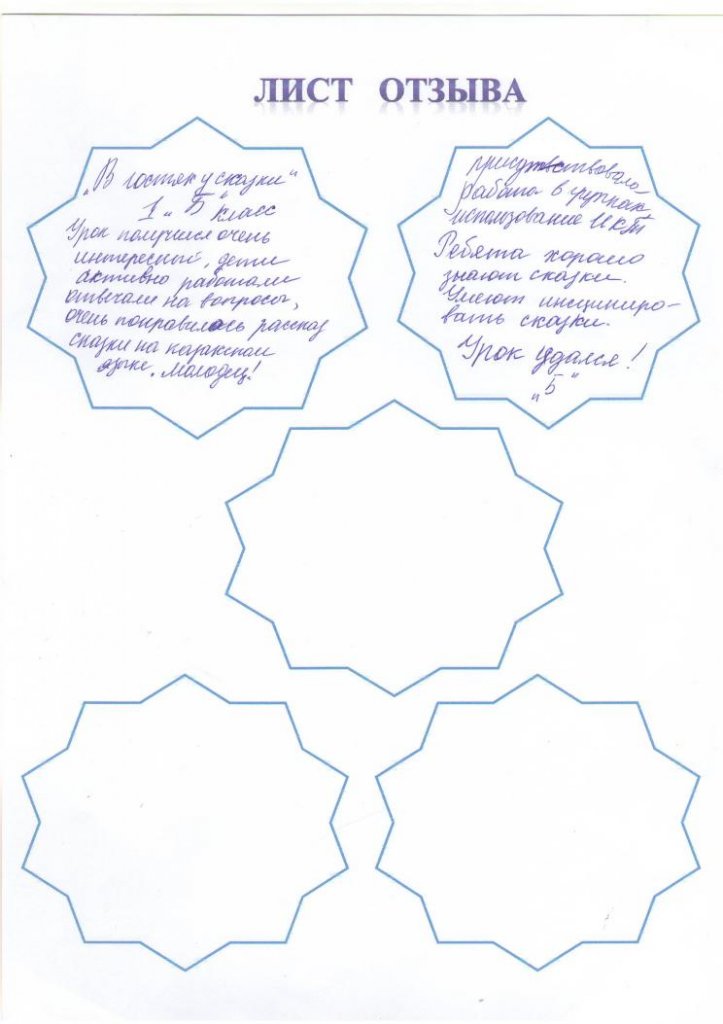 ЛИСТ ОТЗЫВА
„В гостях у сказки“
1 „Б“ класс
Урок получился очень
интересный, дети
активно работали
отвечали на вопросы,
очень понравилась рассказ
сказки на казахском
языке. Молодец!
присутствовала
работа в группах
использование ИКТ
Ребята хорошо
знают сказки.
Умеют инсциниро-
вать сказки.
Урок удался!
„5“